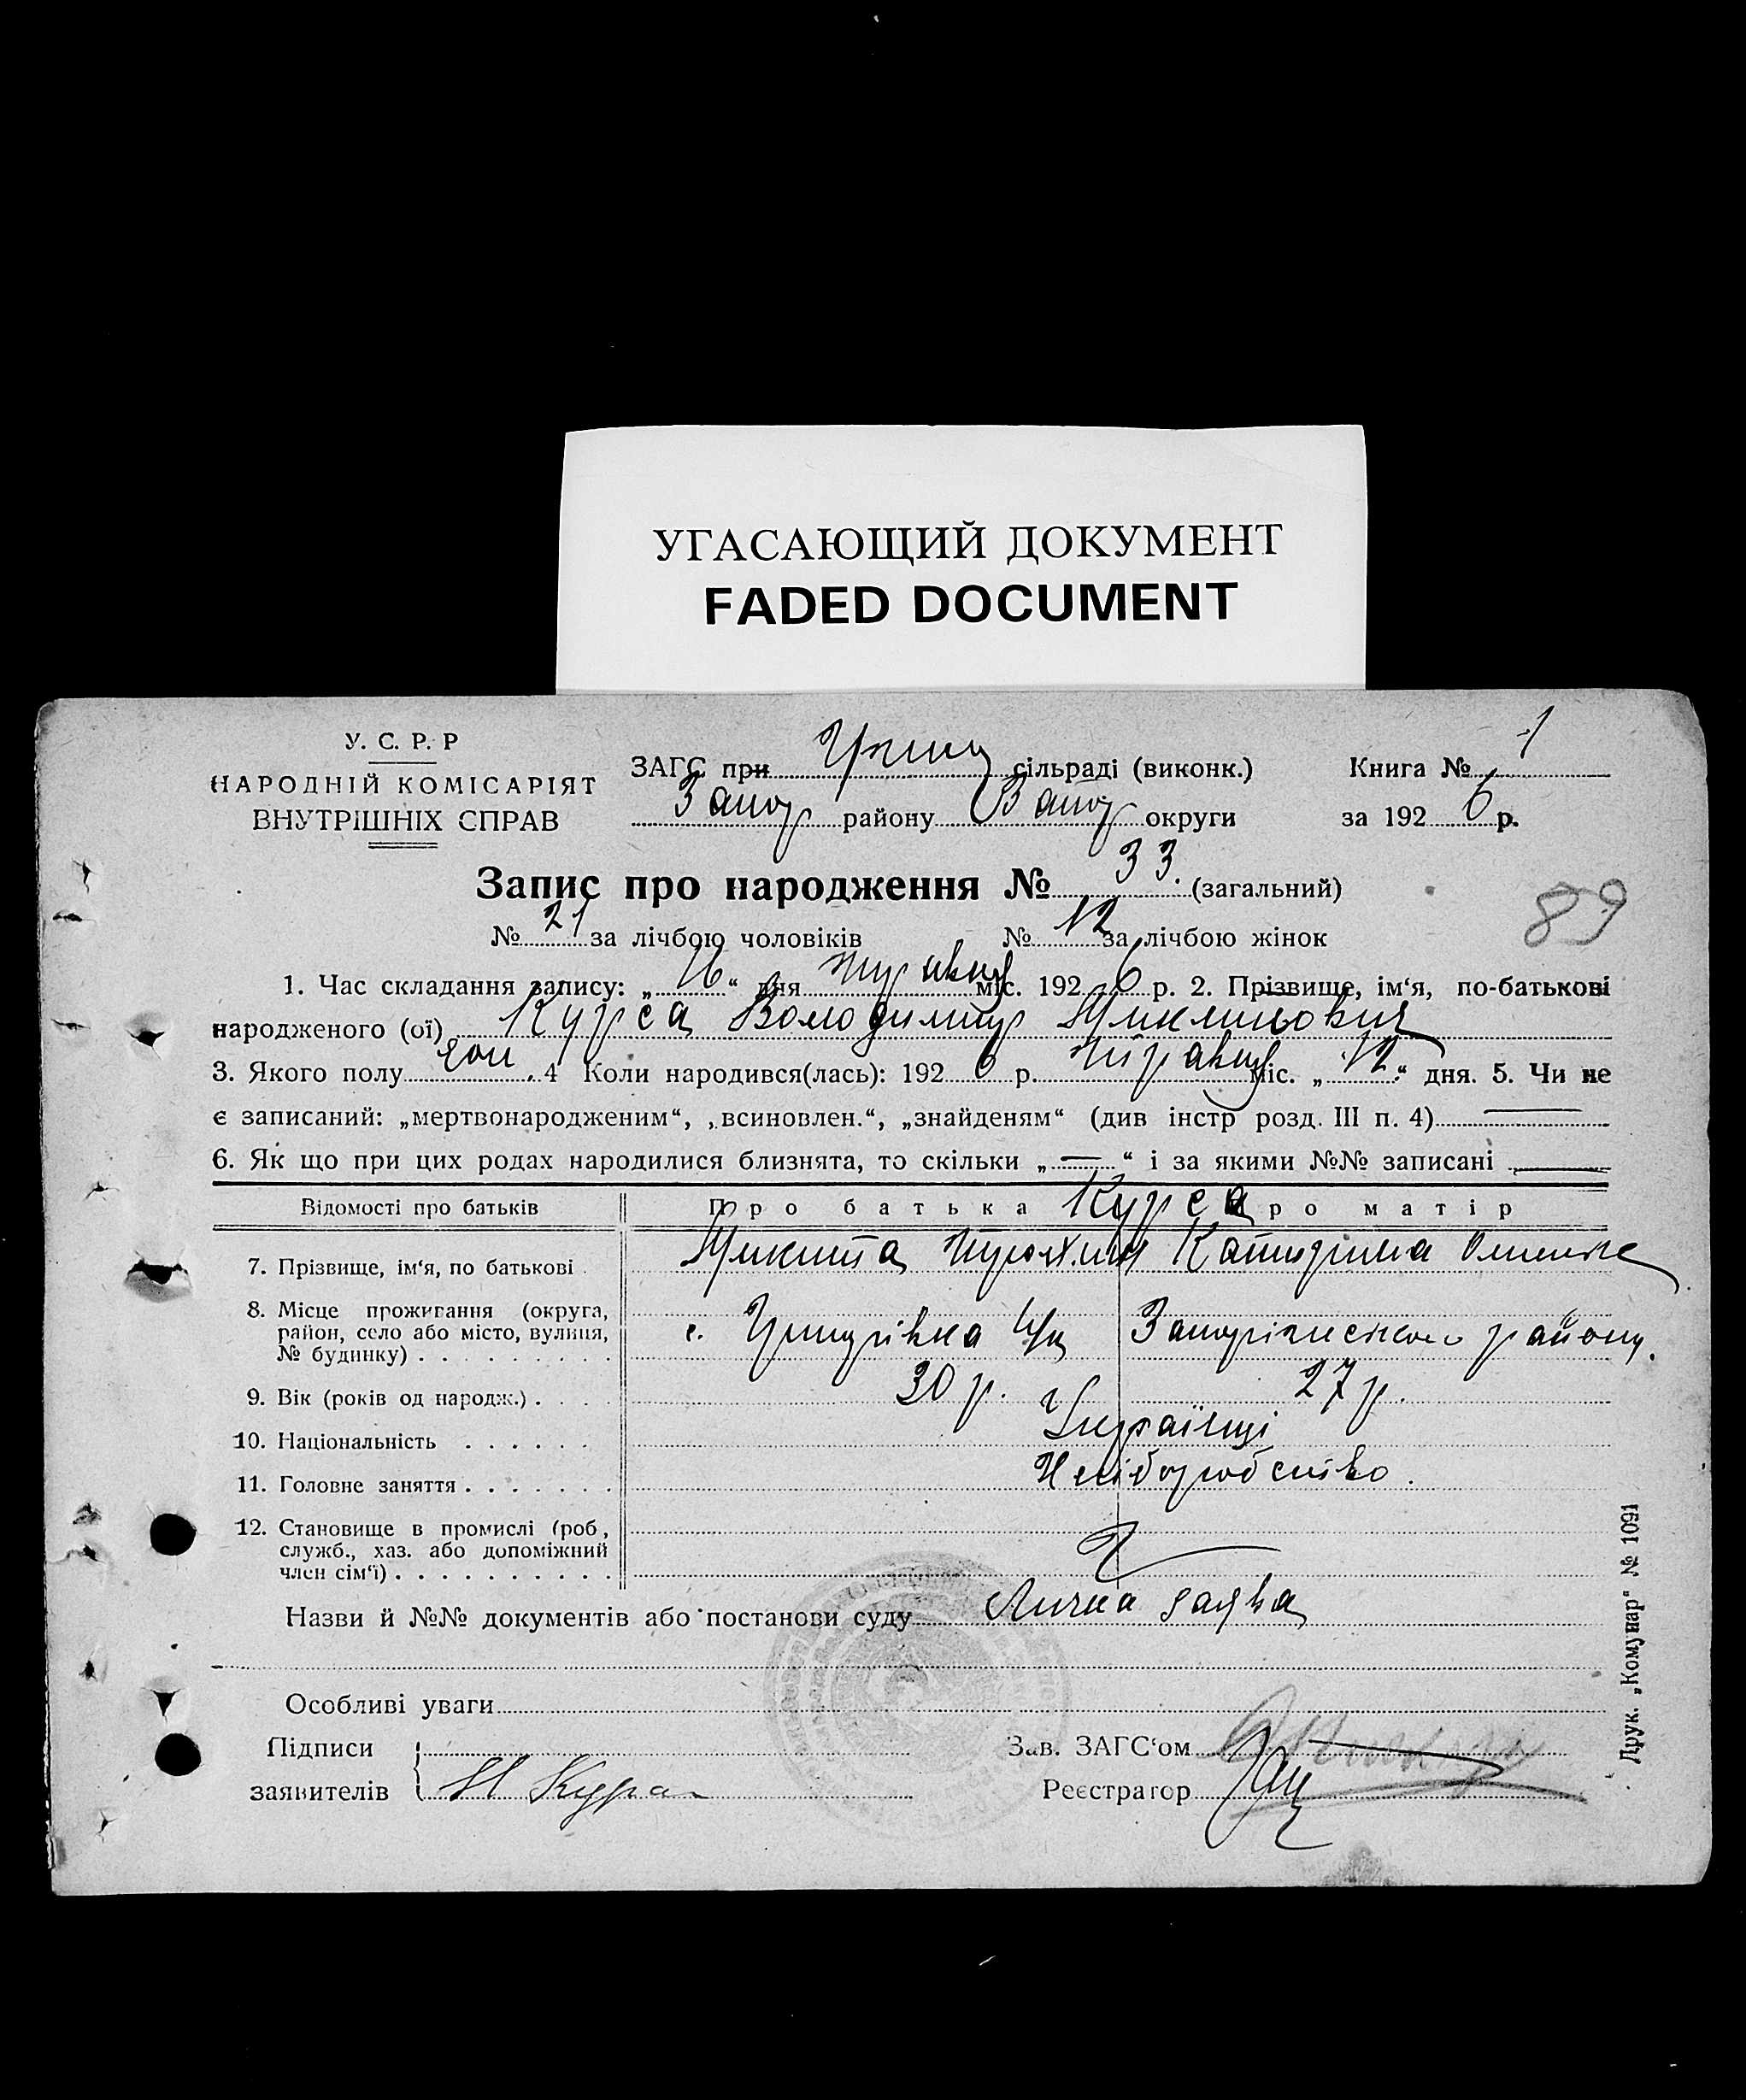 УГАСАЮЩИЙ ДОКУМЕНТ
FADED DOCUMENT
У. С. Р. Р
НАРОДНІЙ КОМІСАРІЯТ
ВНУТРІШНІХ СПРАВ
ЗАГС при сільраді (виконк.)
Книга № 1
Запор району Запор округи
за 1926 р.
Запис про народження № 33. (загальний)
89
№ 21 за лічбою чоловіків № 12 за лічбою жінок
1. Час складання запису: „16“ дня травця міс. 1926 р. 2. Прізвище, ім‘я, по-батькові
народженого (ої) Курса Володимир Микитович
3. Якого полу чол. 4 Коли народився(лась): 1926 р. травця міс. „12“ дня. 5. Чи не
є записаний: „мертвонародженим“, „всиновлен.“, „знайденям“ (див інстр розд. III п. 4) —
6. Як що при цих родах народилися близнята, то скільки „—“ і за якими №№ записані —
Відомості про батьків
Про батька Курса Про матір
7. Прізвище, ім‘я, по батькові
Микита Катирина
8. Місце проживання (округа,
район, село або місто, вулиця,
№ будинку)
с. Запоріжського району.
9. Вік (років од народж.)
30 р. 27 р.
10. Національність
Українці
11. Головне заняття
Хліборобство.
12. Становище в промислі (роб,
служб., хаз. або допоміжний
член сім‘ї)
Назви й №№ документів або постанови суду Лична заява
Особливі уваги
Підписи
заявителів
Н Курса
Зав. ЗАГС‘ом
Реєстратор
Друк. „Комунар“ № 1091